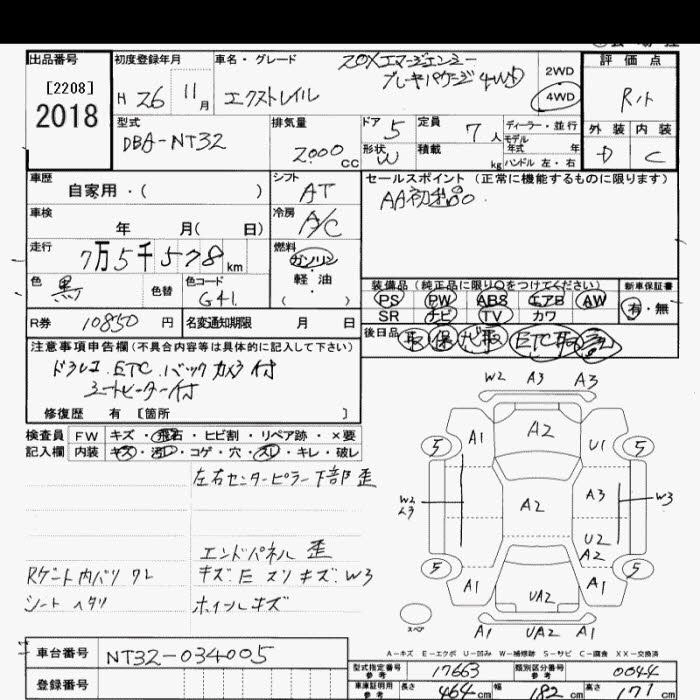 出品番号 初度登録年月 車名・グレード 20X エマージェンシー 評価点
ブレーキパッケージ 4WD 2WD
[2208] H 26 11月 エクストレイル 4WD R
2018 型式 排気量 ドア 5 定員 7人 ディーラー・並行 外装 内装
DBA-NT32 2000cc 形状 W 積載 kg モデル年式 年 D C
ハンドル 左・右
車歴 シフト セールスポイント (正常に機能するものに限ります)
自家用・( ) AT AA初出品
車検 冷房
年 月( 日) A/C
走行 7万5千578km 燃料
ガソリン
色 黒 色替 色コード G41 軽油 装備品 (純正品に限り○をつけてください) 新車保証書
( ) PS PW ABS エアB AW 有・無
R券 10850円 名変通知期限 月 日 SR ナビ TV カワ
後日品 取 保 ナビ取 ETC取
注意事項申告欄 (不具合内容等は具体的に記入して下さい)
ドラレコ.ETC.バックカメラ付
シートヒーター付
修復歴 有 [箇所 ]
検査員 FW キズ・飛石・ヒビ割・リペア跡・×要
記入欄 内装 キズ・汚レ・コゲ・穴・スレ・キレ・破レ
左右センターピラー下部歪
エンドパネル歪
Rゲート内バリ ワレ キズ.E スソ キズ.W3
シート ヘタリ ホイールキズ
W2 A3 A3
A1 A2 U1
5 5
A3
W2 A2 W3
U2
A2
5 5
A1 UA2 A1
スペア A1 UA2 A1
A-キズ E-エクボ U-凹み W-補修跡 S-サビ C-腐食 XX-交換済
車台番号 NT32-034005
型式指定番号 参考 17663 類別区分番号 参考 0044
登録番号 車庫証明用 参考 長さ 464cm 幅 182cm 高さ 171cm